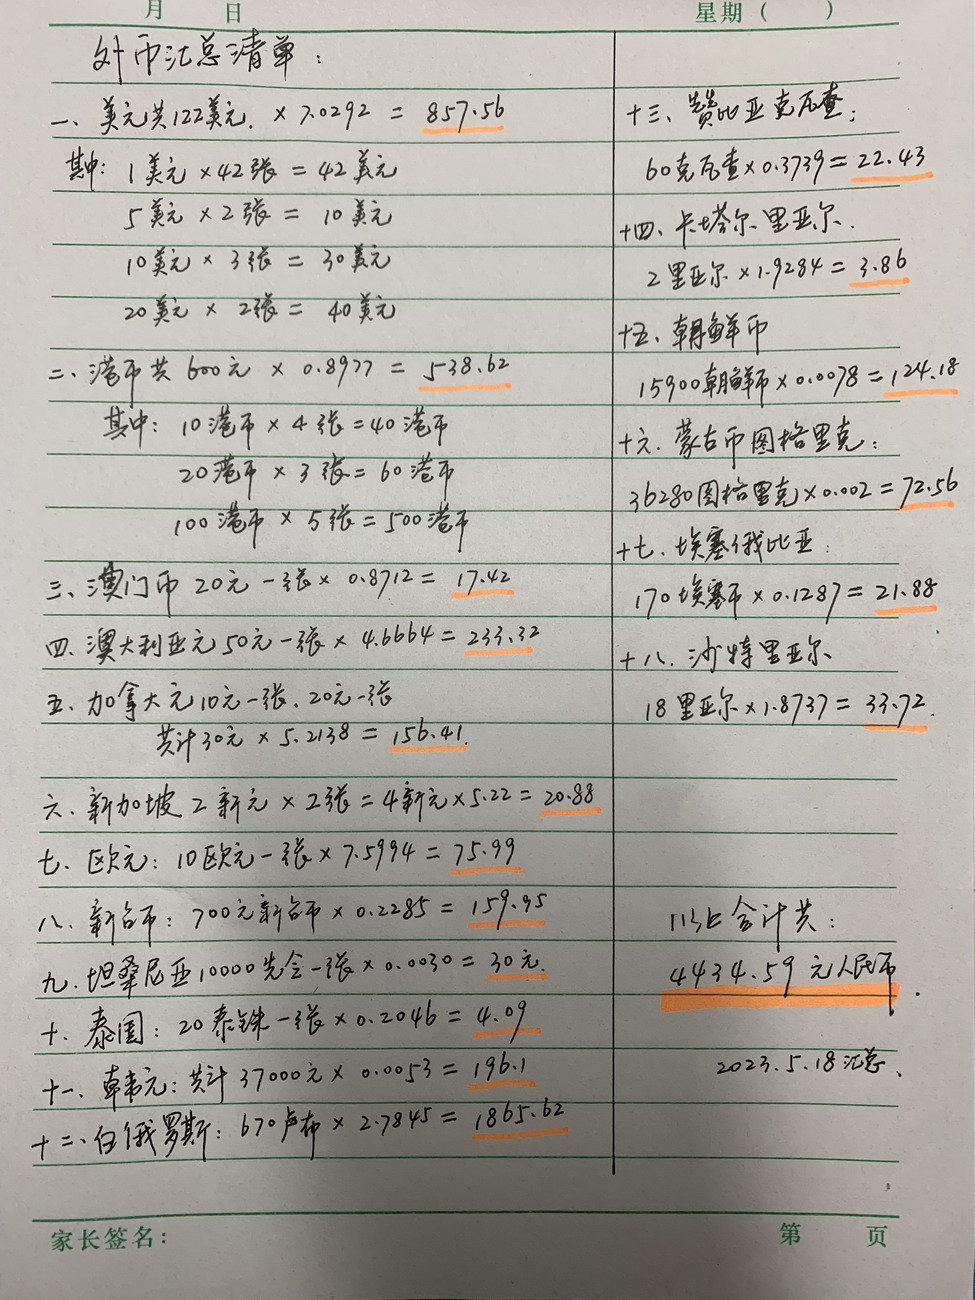 月 日
星期( )
外币汇总清单:
一、美元共122美元. × 7.0292 = 857.56
其中: 1美元 × 42张 = 42美元
5美元 × 2张 = 10美元
10美元 × 3张 = 30美元
20美元 × 2张 = 40美元
二、港币共 600元 × 0.8977 = 538.62
其中: 10港币 × 4张 = 40港币
20港币 × 3张 = 60港币
100港币 × 5张 = 500港币
三、澳门币 20元一张 × 0.8712 = 17.42
四、澳大利亚元50元一张 × 4.6664 = 233.32
五、加拿大元10元一张、20元一张
共计30元 × 5.2138 = 156.41.
六、新加坡 2新元 × 2张 = 4新元 × 5.22 = 20.88
七、欧元: 10欧元一张 × 7.5994 = 75.99
八、新台币: 700元新台币 × 0.2285 = 159.95
九、坦桑尼亚10000先令一张 × 0.0030 = 30元.
十、泰国: 20泰铢一张 × 0.2046 = 4.09
十一、韩元: 共计 37000元 × 0.0053 = 196.1
十二、白俄罗斯: 670卢布 × 2.7845 = 1865.62
十三、赞比亚克瓦查:
60克瓦查 × 0.3739 = 22.43
十四、卡塔尔里亚尔.
2里亚尔 × 1.9284 = 3.86
十五、朝鲜币
15900朝鲜币 × 0.0078 = 124.18
十六、蒙古币图格里克:
36280图格里克 × 0.002 = 72.56
十七、埃塞俄比亚:
170埃塞币 × 0.1287 = 21.88
十八、沙特里亚尔
18里亚尔 × 1.8737 = 33.72.
以上合计共:
4434.59元人民币.
2023.5.18汇总、
家长签名:
第 页